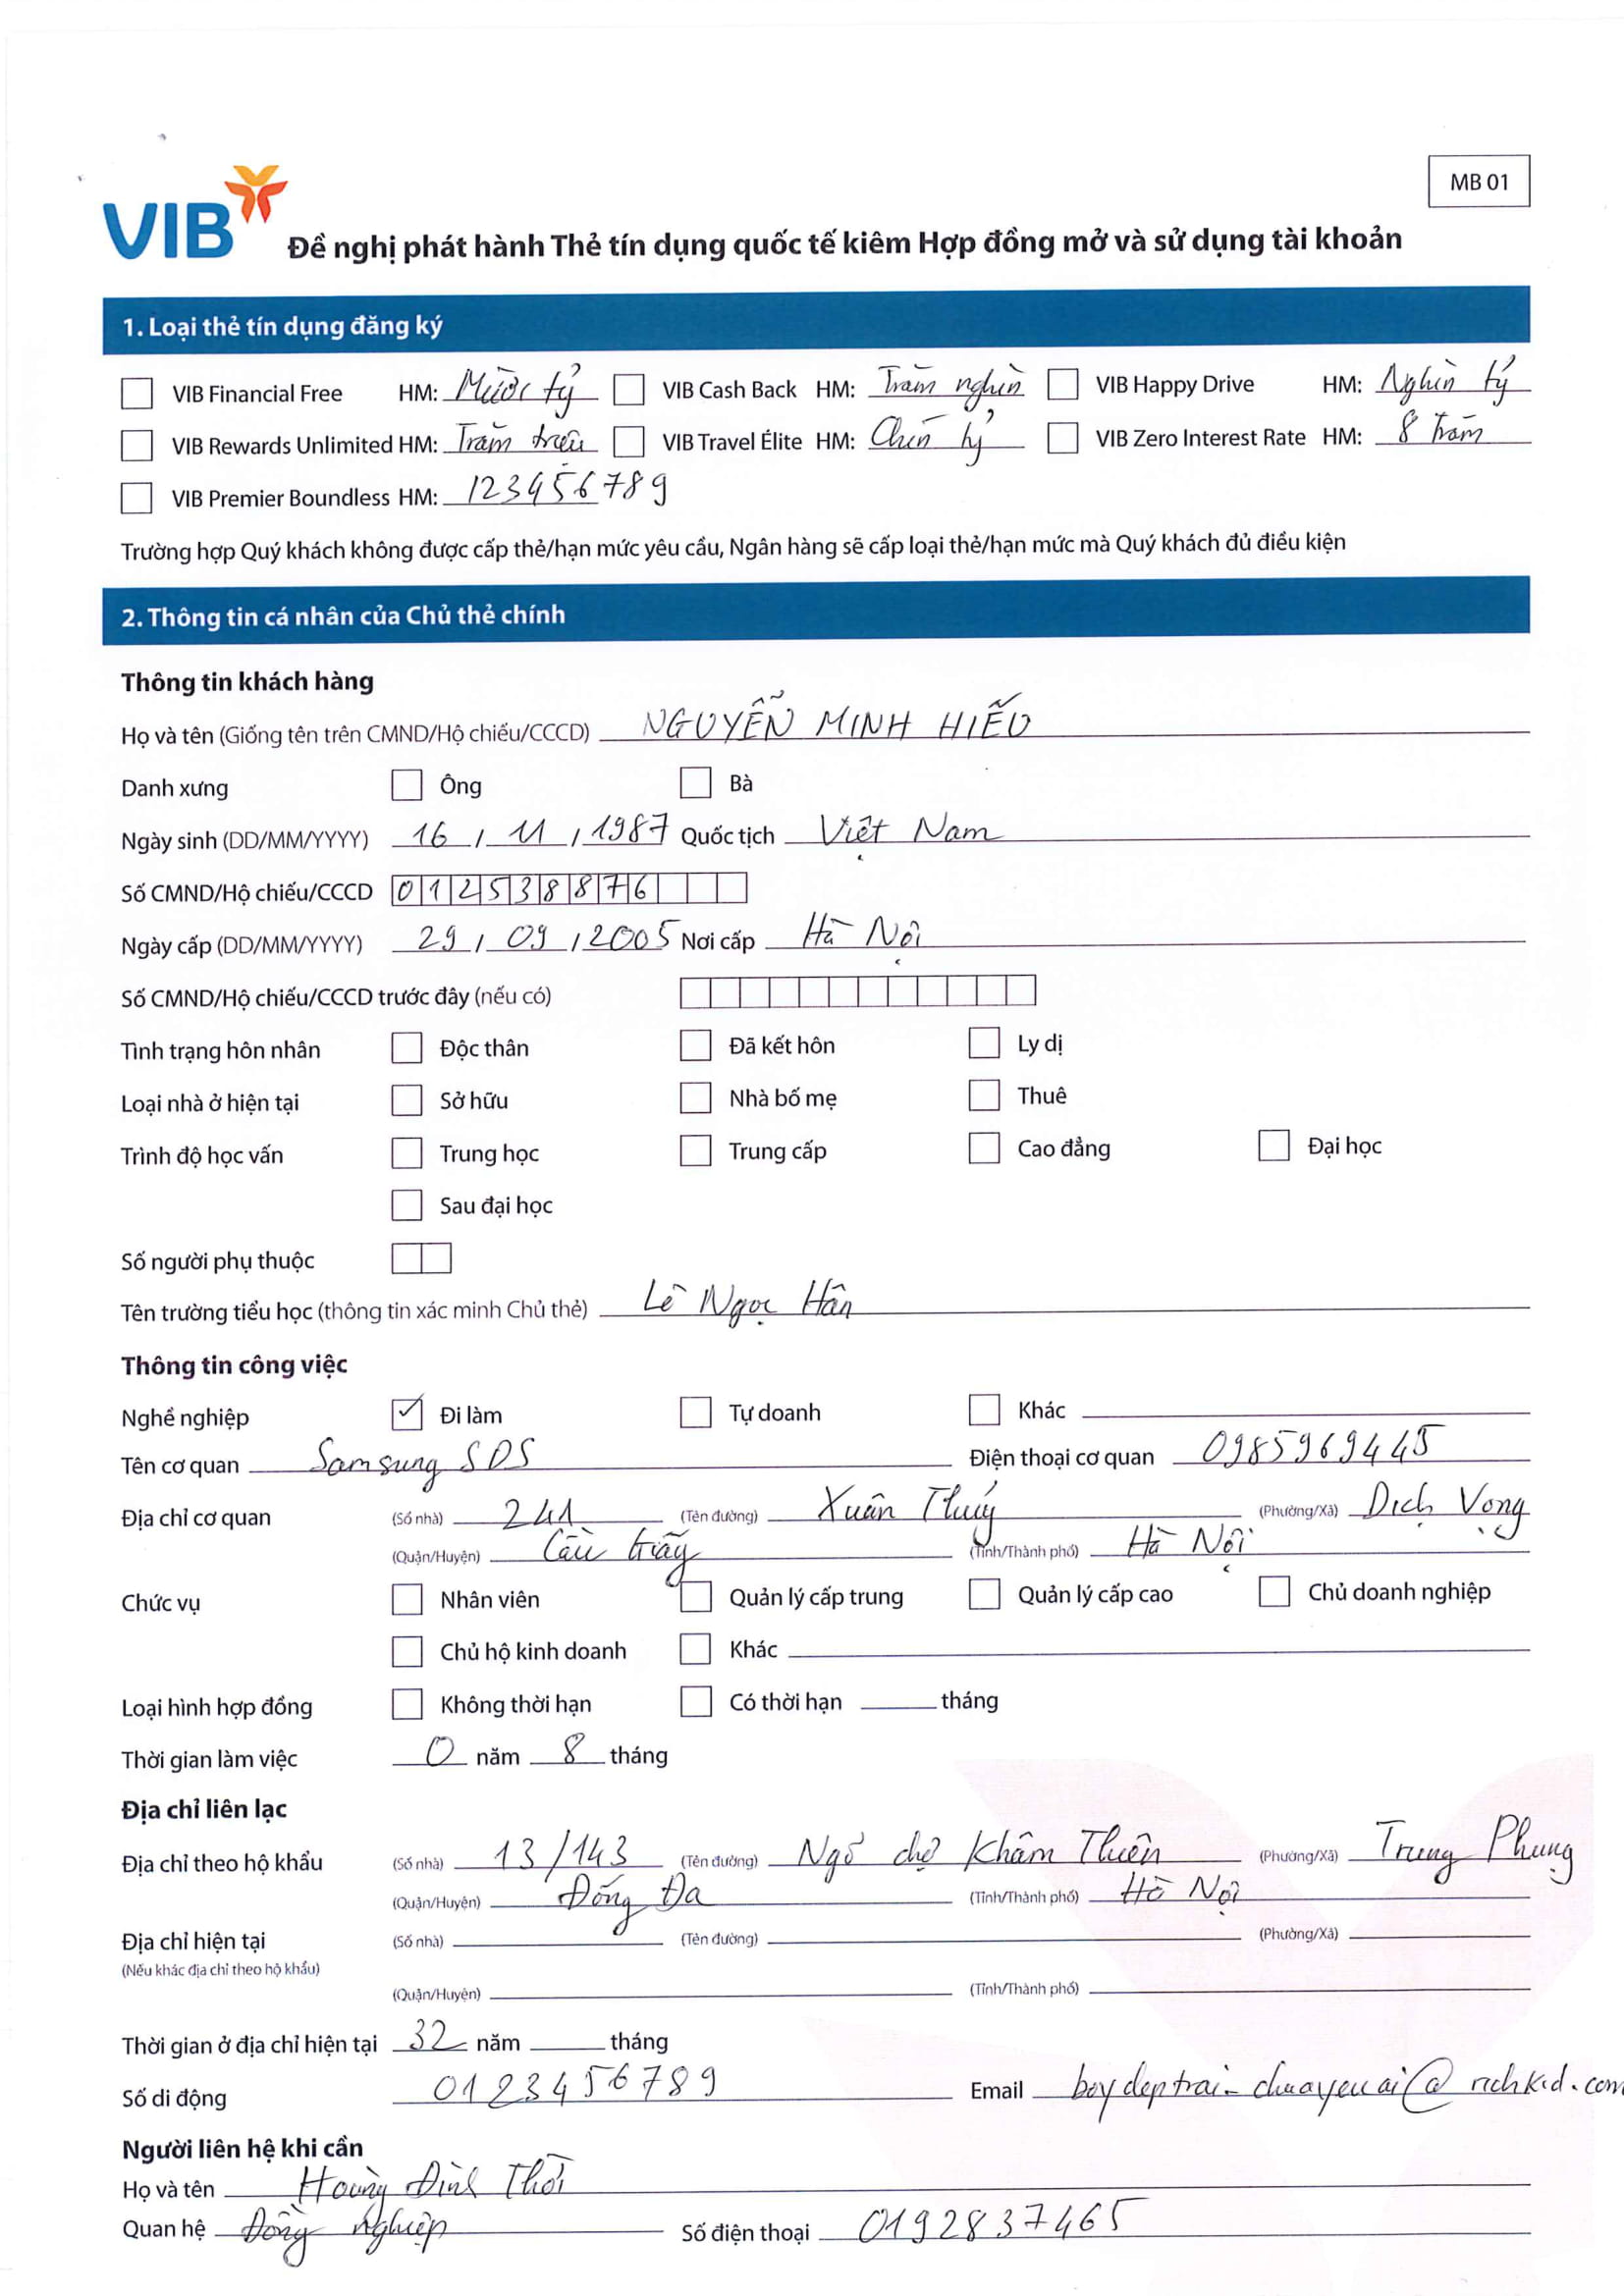 MB 01
VIB
Đề nghị phát hành Thẻ tín dụng quốc tế kiêm Hợp đồng mở và sử dụng tài khoản
1. Loại thẻ tín dụng đăng ký
VIB Financial Free HM: Mười tỷ VIB Cash Back HM: Trăm nghìn VIB Happy Drive HM: Nghìn tỷ
VIB Rewards Unlimited HM: Trăm triệu VIB Travel Élite HM: Chín tỷ VIB Zero Interest Rate HM: 8 trăm
VIB Premier Boundless HM: 123456789
Trường hợp Quý khách không được cấp thẻ/hạn mức yêu cầu, Ngân hàng sẽ cấp loại thẻ/hạn mức mà Quý khách đủ điều kiện
2. Thông tin cá nhân của Chủ thẻ chính
Thông tin khách hàng
Họ và tên (Giống tên trên CMND/Hộ chiếu/CCCD) NGUYỄN MINH HIẾU
Danh xưng Ông Bà
Ngày sinh (DD/MM/YYYY) 16 / 11 / 1987 Quốc tịch Việt Nam
Số CMND/Hộ chiếu/CCCD 012538876
Ngày cấp (DD/MM/YYYY) 29 / 09 / 2005 Nơi cấp Hà Nội
Số CMND/Hộ chiếu/CCCD trước đây (nếu có)
Tình trạng hôn nhân Độc thân Đã kết hôn Ly dị
Loại nhà ở hiện tại Sở hữu Nhà bố mẹ Thuê
Trình độ học vấn Trung học Trung cấp Cao đẳng Đại học
Sau đại học
Số người phụ thuộc
Tên trường tiểu học (thông tin xác minh Chủ thẻ) Lê Ngọc Hân
Thông tin công việc
Nghề nghiệp ✓ Đi làm Tự doanh Khác
Tên cơ quan Samsung SDS Điện thoại cơ quan 0985969445
Địa chỉ cơ quan (Số nhà) 241 (Tên đường) Xuân Thuỷ (Phường/Xã) Dịch Vọng
(Quận/Huyện) Cầu Giấy (Tỉnh/Thành phố) Hà Nội
Chức vụ Nhân viên Quản lý cấp trung Quản lý cấp cao Chủ doanh nghiệp
Chủ hộ kinh doanh Khác
Loại hình hợp đồng Không thời hạn Có thời hạn tháng
Thời gian làm việc 0 năm 8 tháng
Địa chỉ liên lạc
Địa chỉ theo hộ khẩu (Số nhà) 13/143 (Tên đường) Ngõ chợ Khâm Thiên (Phường/Xã) Trung Phụng
(Quận/Huyện) Đống Đa (Tỉnh/Thành phố) Hà Nội
Địa chỉ hiện tại (Số nhà) (Tên đường) (Phường/Xã)
(Nếu khác địa chỉ theo hộ khẩu)
(Quận/Huyện) (Tỉnh/Thành phố)
Thời gian ở địa chỉ hiện tại 32 năm tháng
Số di động 0123456789 Email boydeptrai-chuayeuai@richkid.com
Người liên hệ khi cần
Họ và tên Hoàng Đình Thời
Quan hệ Đồng nghiệp Số điện thoại 0192837465